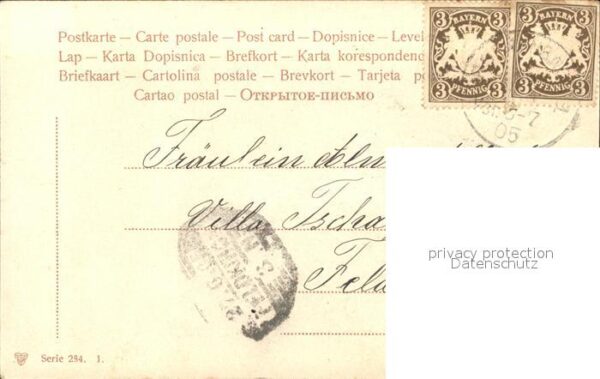 Postkarte – Carte postale – Post card – Dopisnice – Level
Lap – Karta Dopisnica – Brefkort – Karta korespondenc
Briefkaart – Cartolina postale – Brevkort – Tarjeta po
Cartao postal – Открытое-письмо
3 BAYERN 3
3 PFENNIG 3
3 BAYERN 3
3 PFENNIG 3
6-7
05
Fräulein
Villa Tscha
Feld
privacy protection
Datenschutz
Serie 254. 1.